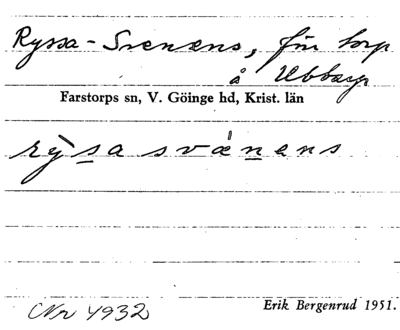 Ryssa-Svenæns, för torp
å Ubbarp
Farstorps sn, V. Göinge hd, Krist. län
rysa svänens
Nr 4932
Erik Bergenrud 1951.